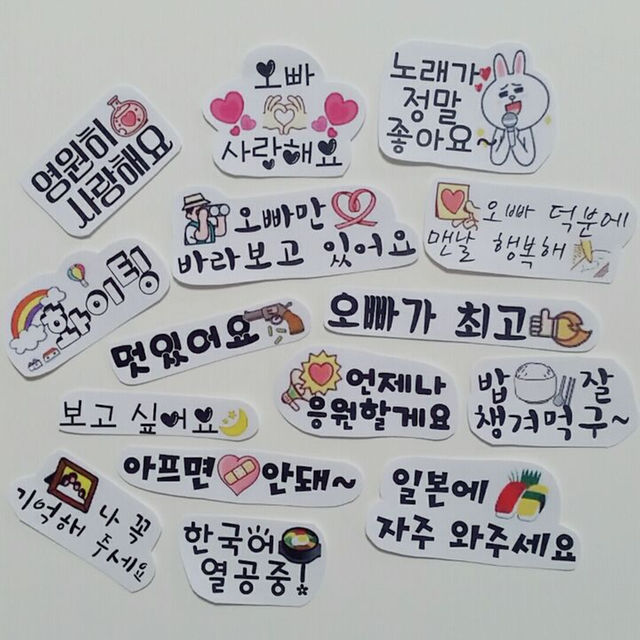 오빠
사랑해요
노래가
정말
좋아요~
영원히
사랑해요
오빠만
바라보고 있어요
오빠 덕분에
맨날 행복해
화이팅
멋있어요
오빠가 최고
언제나
응원할게요
밥 잘
챙겨먹구~
보고 싶어요
아프면 안돼~
나 꼭
기억해 두세요
한국어
열공중!
일본에
자주 와주세요